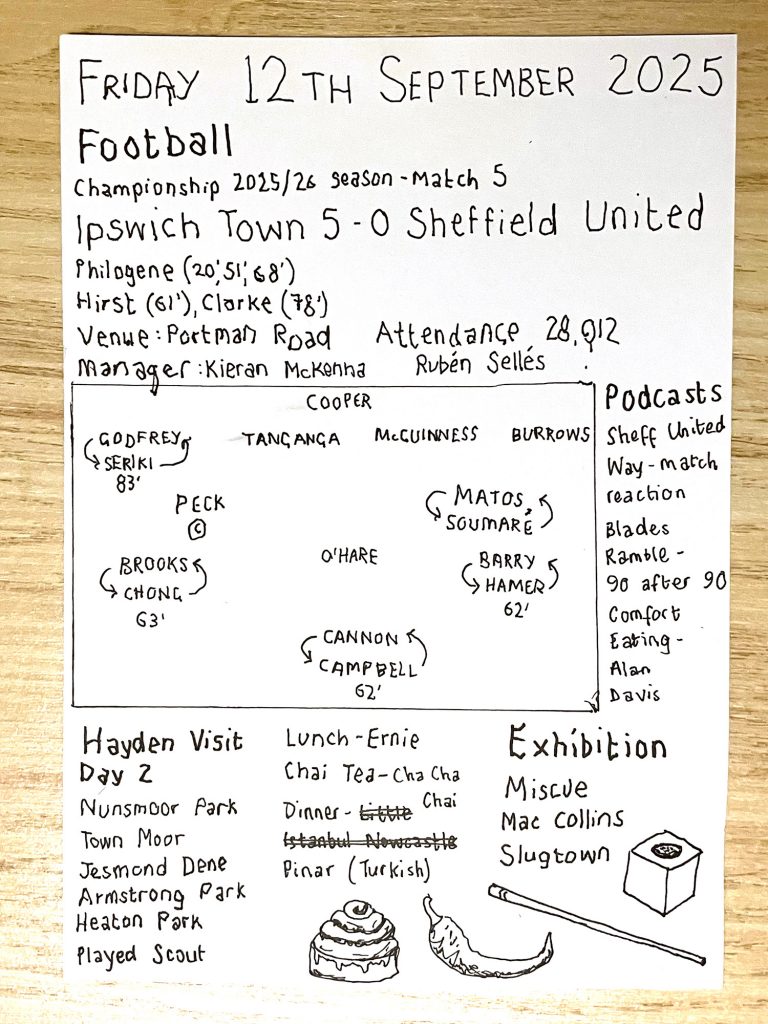 FRIDAY 12TH SEPTEMBER 2025
Football
Championship 2025/26 season - Match 5
Ipswich Town 5-0 Sheffield United
Philogene (20', 51', 68')
Hirst (61'), Clarke (78')
Venue: Portman Road Attendance 28,912
Manager: Kieran McKenna Rubén Sellés
COOPER
GODFREY
SERIKI
83'
TANGANGA
McGUINNESS
BURROWS
PECK
©
MATOS
SOUMARÉ
BROOKS
CHONG
63'
O'HARE
BARRY
HAMER
62'
CANNON
CAMPBELL
62'
Podcasts
Sheff United
Way - match
reaction
Blades
Ramble -
90 after 90
Comfort
Eating -
Alan
Davis
Hayden Visit
Day 2
Nunsmoor Park
Town Moor
Jesmond Dene
Armstrong Park
Heaton Park
Played Scout
Lunch - Ernie
Chai Tea - Cha Cha
Chai
Dinner - Little
Istanbul Newcastle
Pinar (Turkish)
Exhibition
Miscue
Mac Collins
Slugtown